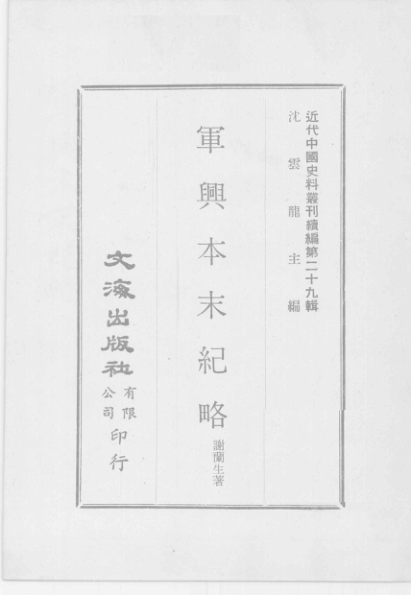 近代中國史料叢刊續編第二十九輯
沈雲龍主編
軍興本末紀略
謝蘭生著
文海出版社
有限
公司
印行